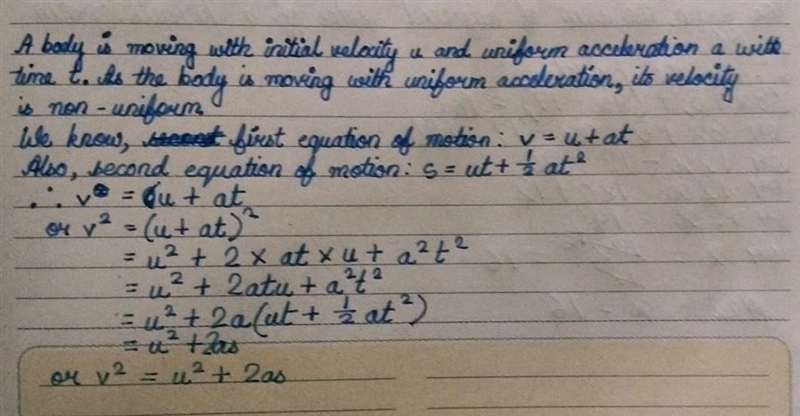 A body is moving with initial velocity u and uniform acceleration a with
time t. As the body is moving with uniform acceleration, its velocity
is non-uniform.
We know, first equation of motion: v = u + at
Also, second equation of motion: s = ut + ½ at²
∴ v = u + at
or v² = (u + at)²
= u² + 2 × at × u + a²t²
= u² + 2atu + a²t²
= u² + 2a(ut + ½ at²)
= u² + 2as
or v² = u² + 2as